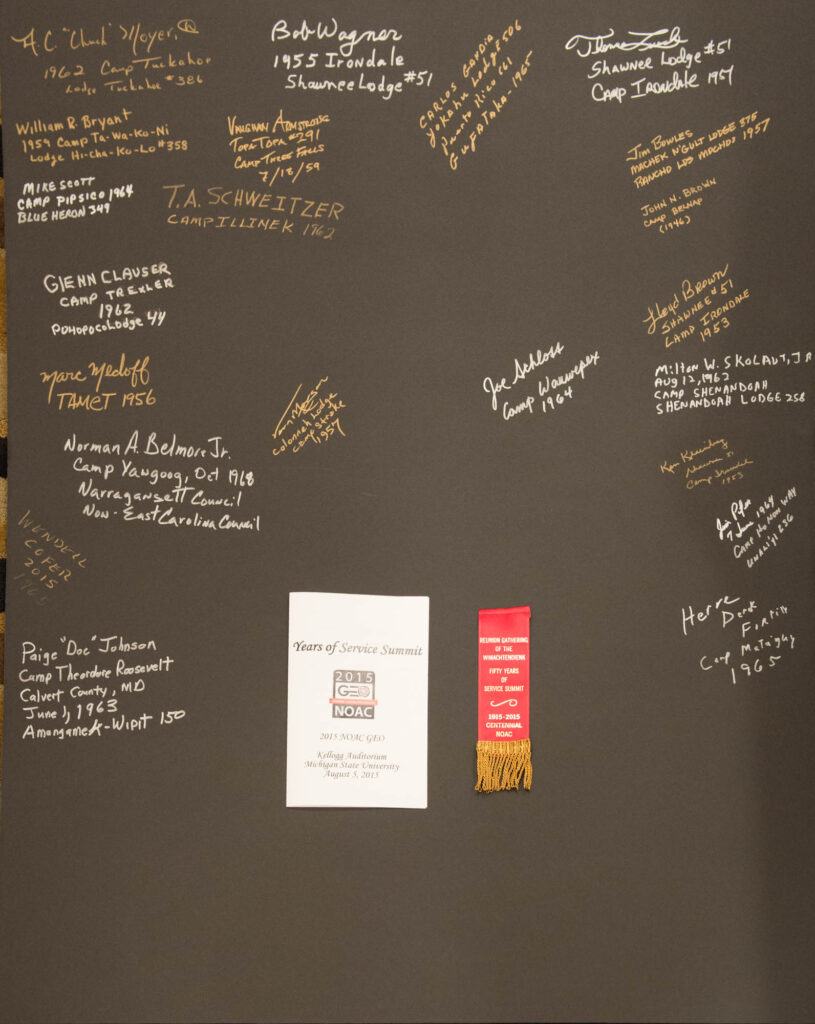 A.C. "Chuck" Moyer,
1962 Camp Tuckahoe
Lodge Tuckahoe #386
Bob Wagner
1955 Irondale
Shawnee Lodge #51
CARLOS GANDIA
Yokahu Lodge 506
Puerto Rico 661
GUAJATAKA-1965-
Shawnee Lodge #51
Camp Irondale 1957
William R. Bryant
1959 Camp Ta-Wa-Ko-Ni
Lodge Hi-Cha-Ko-Lo #358
VAUGHAN ARMSTRONG
TOPA TOPA #291
CAMP THREE FALLS
7/18/59
JIM BOWLES
MACHEK N'GULT LODGE 375
RANCHO LOS MACHOS 1957
MIKE SCOTT
CAMP PIPSICO 1964
BLUE HERON 349
T.A. SCHWEITZER
CAMP ILLINEK 1962
JOHN N. BROWN
CAMP BELNAP
(1946)
GLENN CLAUSER
CAMP TREXLER
1962
POHOPOCO Lodge 44
Lloyd BROWN
SHAWNEE #51
CAMP IRONDALE
1953
Marc Medoff
TAMET 1956
Colonneh Lodge
Camp Strake
1957
Joe Schloss
Camp Wauwepex
1964
Milton W. SKOLAUT, JR
Aug 12, 1962
CAMP SHENANDOAH
SHENANDOAH LODGE 258
Norman A. Belmore Jr.
Camp Yawgoog, Oct 1968
Narragansett Council
Now - East Carolina Council
Shawnee 51
Camp Irondale
1953
WENDELL
COFER
2015
1965
7 June 1964
CAMP NO NOW WAY
UNALI'YI 236
Paige "Doc" Johnson
Camp Theordore Roosevelt
Calvert County, MD
June 1, 1963
Amangamek-Wipit 150
Derek
Camp
1965
Years of Service Summit
2015
GEO
NOAC
2015 NOAC GEO
Kellogg Auditorium
Michigan State University
August 5, 2015
REUNION GATHERING
OF THE
WIMACHTENDIENK
FIFTY YEARS
OF
SERVICE SUMMIT
1915-2015
CENTENNIAL
NOAC